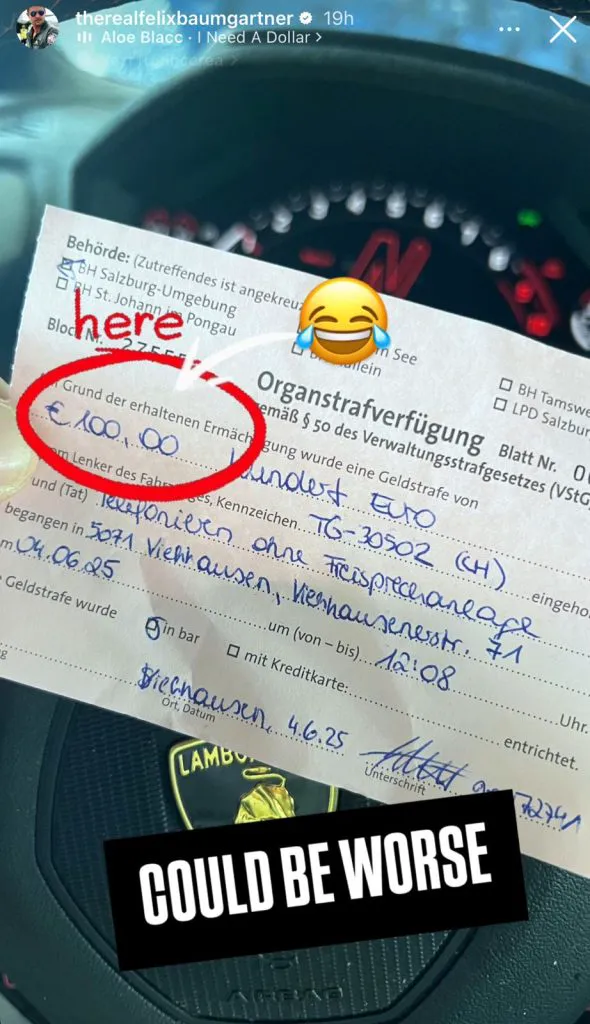 therealfelixbaumgartner 19h
Aloe Blacc · I Need A Dollar >
Behörde: (Zutreffendes ist angekreuz
BH Salzburg-Umgebung
BH St. Johann im Pongau
n See
llein
BH Tamswe
LPD Salzbur
here
Block Nr.
Organstrafverfügung
gemäß § 50 des Verwaltungsstrafgesetzes (VStG
Blatt Nr. 0
Grund der erhaltenen Ermächtigung wurde eine Geldstrafe von
€ 100,00 hundert Euro
em Lenker des Fahrzeuges, Kennzeichen TG-30502 (CH) eingeho
und (Tat) Telefonieren ohne Freisprechanlage
begangen in 5071 Viehhausen, Viehhausenerstr. 71
m 04.06.25 um (von – bis) 12:08 Uhr.
Geldstrafe wurde in bar mit Kreditkarte: entrichtet.
Viehhausen, 4.6.25
Ort, Datum
Unterschrift
LAMBO
COULD BE WORSE
AIRBAG